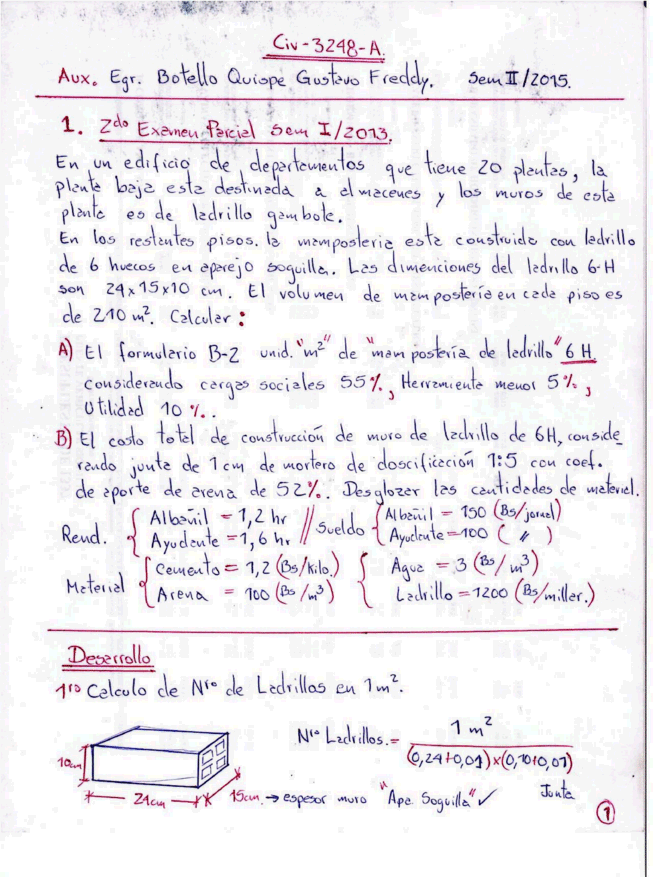 Civ-3248-A.
Aux. Egr. Botello Quispe Gustavo Freddy. Sem II/2015.
1. 2do Examen Parcial Sem I/2013.
En un edificio de departamentos que tiene 20 plantas, la
planta baja esta destinada a almacenes y los muros de esta
planta es de ladrillo gambote.
En los restantes pisos. la mamposteria esta construida con ladrillo
de 6 huecos en aparejo soguilla. Las dimenciones del ladrillo 6-H
son 24x15x10 cm. El volumen de mampostería en cada piso es
de 210 m². Calcular:
A) El formulario B-2 unid. "m²" de "mampostería de ladrillo" 6 H.
considerando cargas sociales 55%, Herramienta menor 5%,
Utilidad 10%..
B) El costo total de construcción de muro de ladrillo de 6H, conside_
rando junta de 1cm de mortero de doscificación 1:5 con coef.
de aporte de arena de 52%. Desglozar las cantidades de material.
Rend. { Albañil = 1,2 hr // Sueldo { Albañil = 150 (Bs/jornal)
Ayudante = 1,6 hr Ayudante = 100 (〃 )
Material { Cemento = 1,2 (Bs/kilo.) { Agua = 3 (Bs/m³)
Arena = 100 (Bs/m³) Ladrillo = 1200 (Bs/millar.)
Desarrollo
1ro Calculo de Nro de Ladrillos en 1m².
Nro Ladrillos. = 1 m² / (0,24+0,01)x(0,10+0,01)
Junta
10cm
24cm 15cm. → espesor muro "Apa. Soguilla" ✓
1